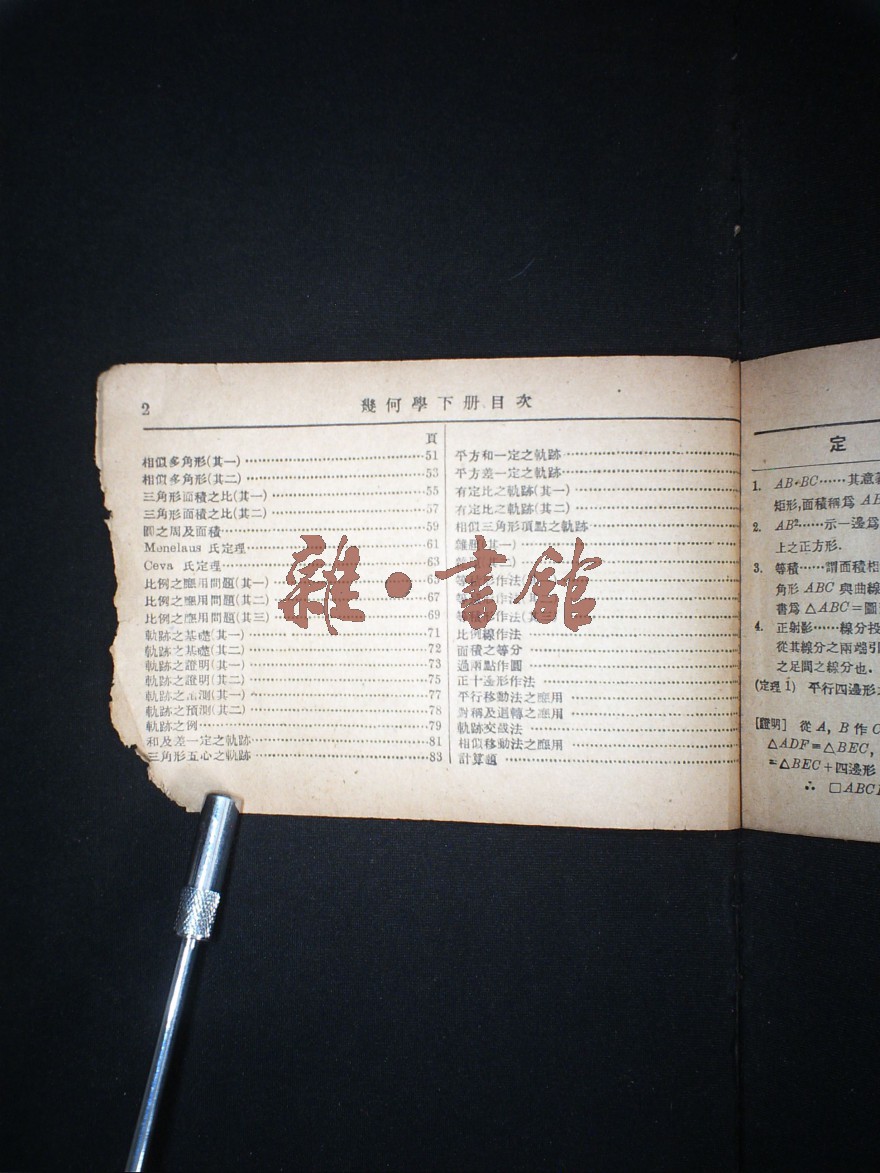 2
幾何學下册目次
頁
相似多角形(其一)……51
相似多角形(其二)……53
三角形面積之比(其一)……55
三角形面積之比(其二)……57
圓之周及面積……59
Menelaus 氏定理……61
Ceva 氏定理……63
比例之應用問題(其一)……65
比例之應用問題(其二)……67
比例之應用問題(其三)……69
軌跡之基礎(其一)……71
軌跡之基礎(其二)……72
軌跡之證明(其一)……73
軌跡之證明(其二)……75
軌跡之預測(其一)……77
軌跡之預測(其二)……78
軌跡之例……79
和及差一定之軌跡……81
三角形五心之軌跡……83
平方和一定之軌跡……
平方差一定之軌跡……
有定比之軌跡(其一)……
有定比之軌跡(其二)……
相似三角形頂點之軌跡……
雜題(其一)……
比例線作法……
面積之等分……
過兩點作圓……
正十邊形作法……
平行移動法之應用……
對稱及迴轉之應用……
軌跡交截法……
相似移動法之應用……
計算題……
雜·書館
定
1. AB·BC……其意義
矩形,面積稱爲 AB
2. AB²……示一邊爲
上之正方形.
3. 等積……謂面積相
角形 ABC 與曲線
書爲 △ABC=圖
4. 正射影……線分投
從其線分之兩端引
之足間之線分也.
(定理 1) 平行四邊形
[證明] 從 A, B 作 C
△ADF=△BEC,
=△BEC+四邊形
∴ □ABC